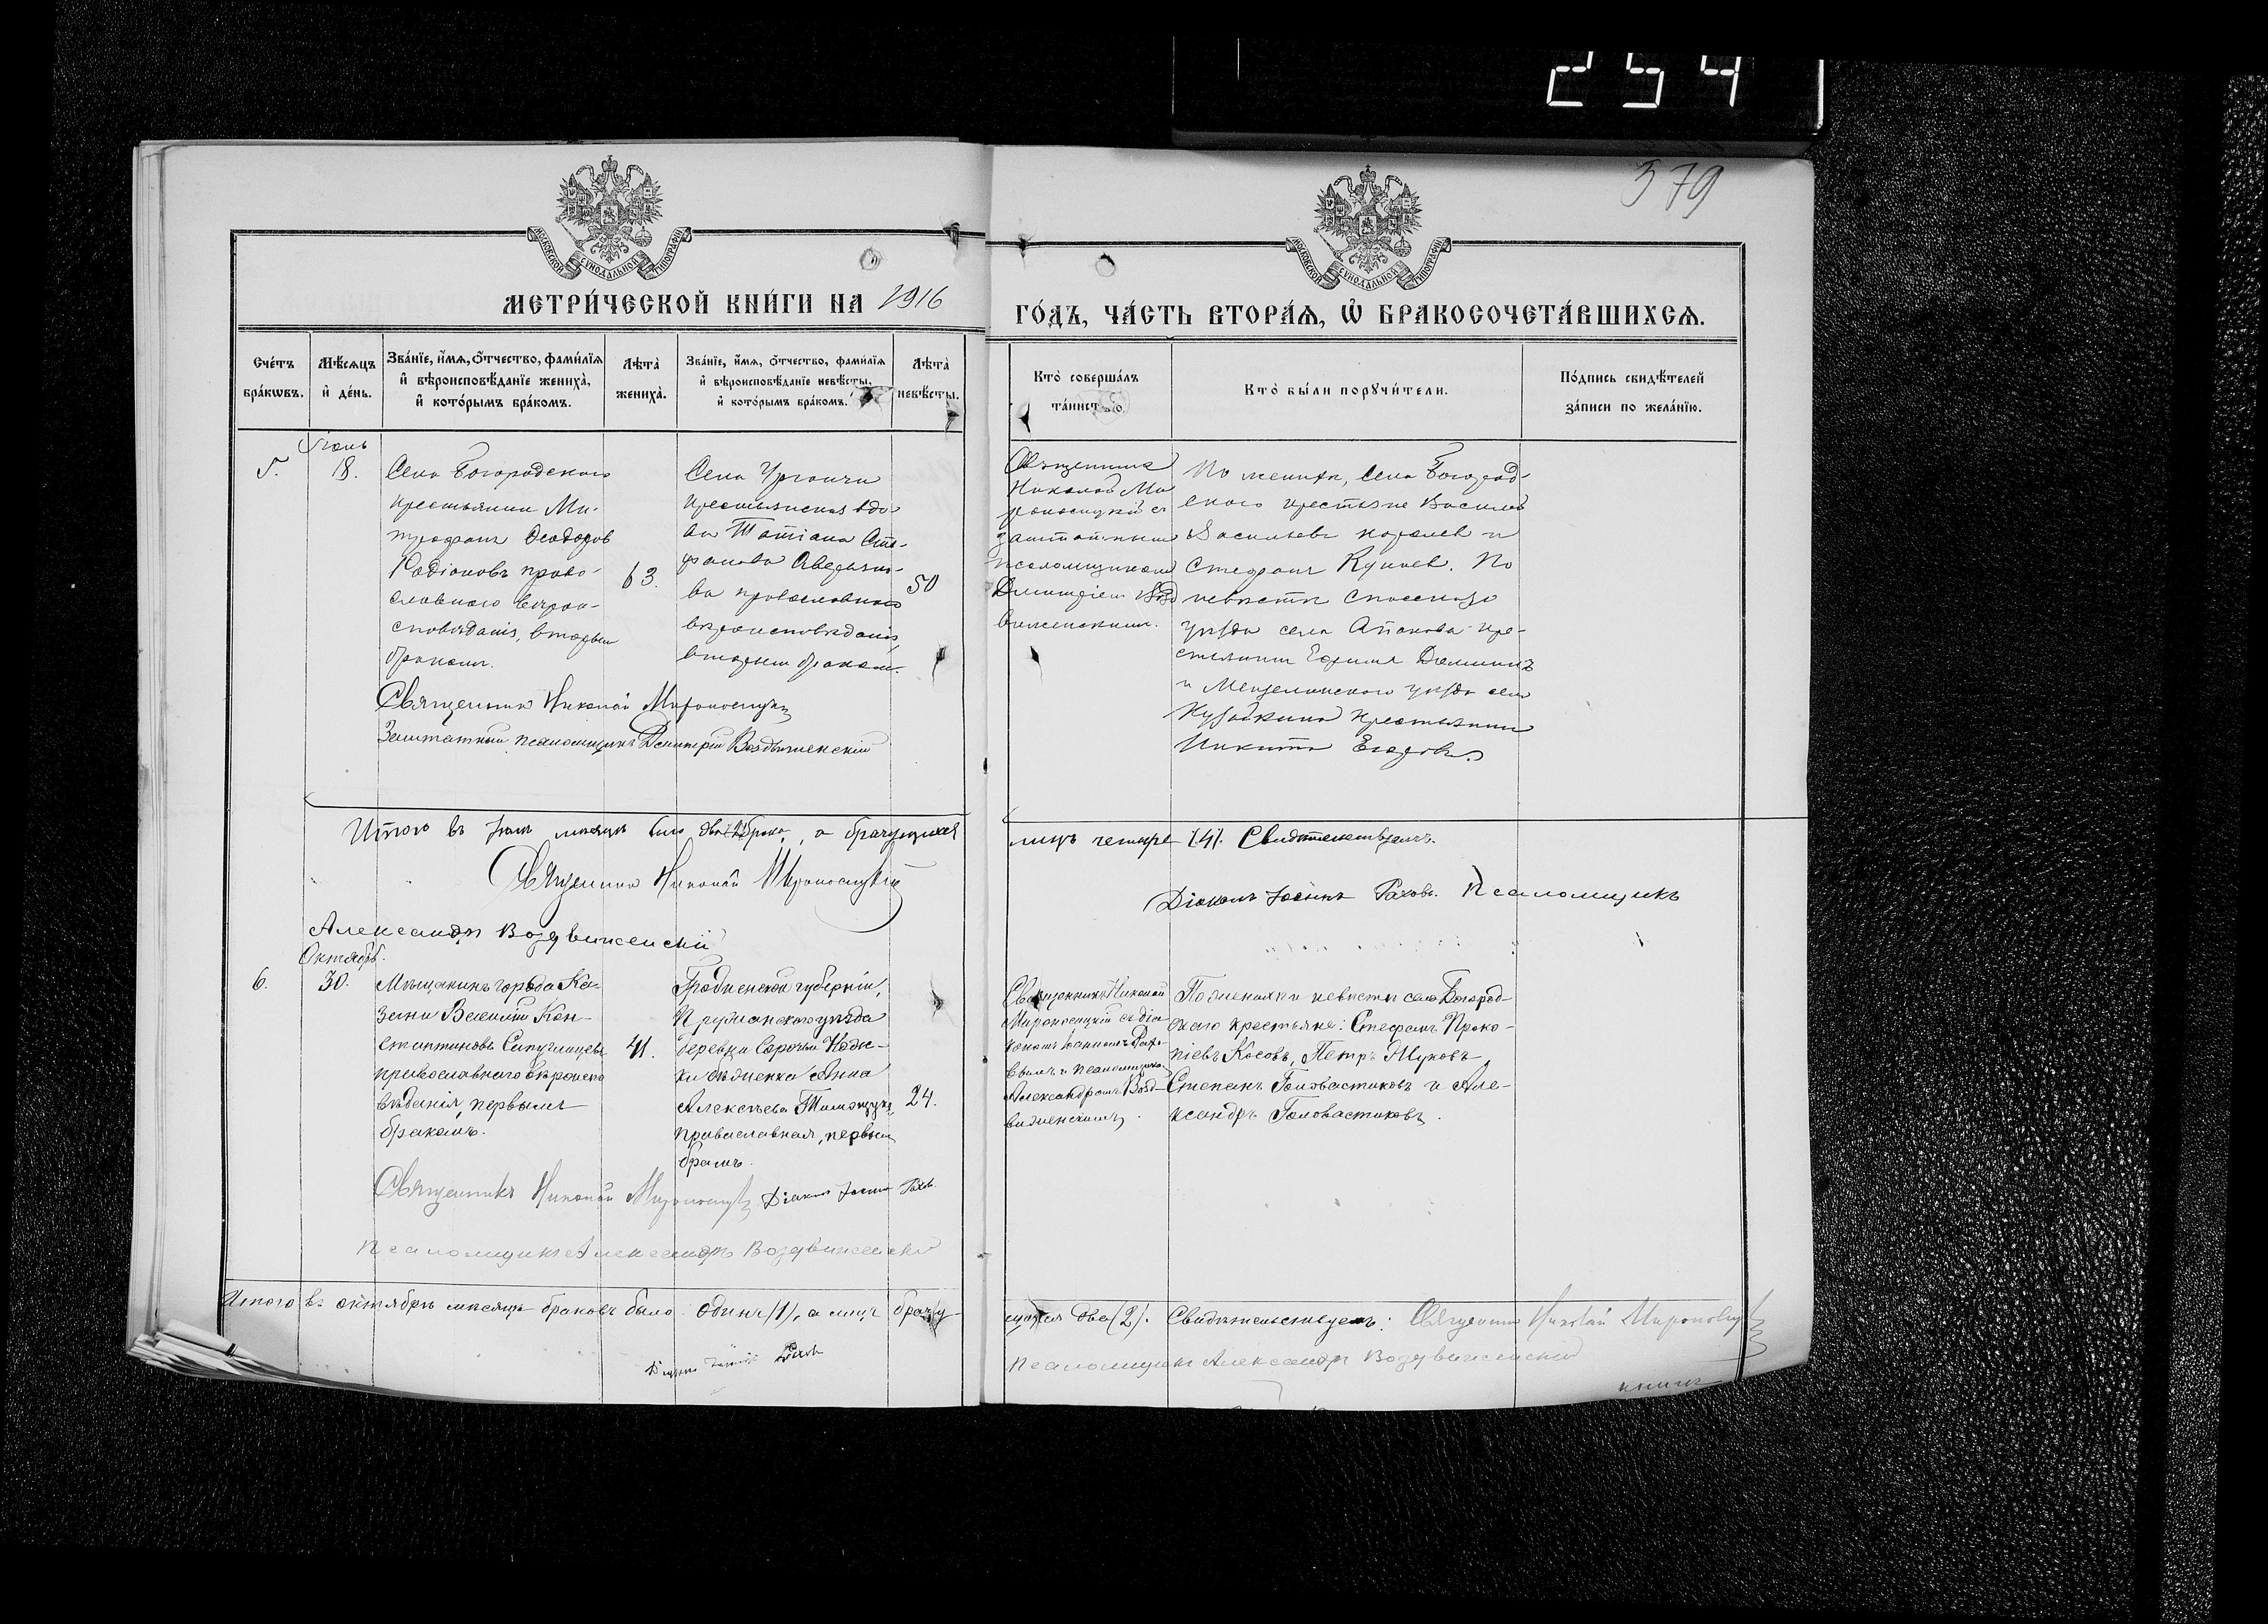 254
579
МОСКОВСКОЙ СѴНОДАЛЬНОЙ ТИПОГРАФІИ
МОСКОВСКОЙ СѴНОДАЛЬНОЙ ТИПОГРАФІИ
МЕТРИ́ЧЕСКОЙ КНИ́ГИ НА 1916
ГО́ДЪ, ЧА́СТЬ ВТОРА́Ѧ, Ѽ БРАКОСОЧЕТА́ВШИХСѦ.
Сче́тъ бра́кѡвъ.
Мѣ́сѧцъ и҆ де́нь.
Зва́нїе, и҆́мѧ, ѻ҆́тчество, фами́лїѧ
и҆ вѣроисповѣ́данїе жениха̀,
и҆ кото́рымъ бра́комъ.
Лѣта̀ жениха̀.
Зва́нїе, и҆́мѧ, ѻ҆́тчество, фами́лїѧ
и҆ вѣроисповѣ́данїе невѣ́сты,
и҆ кото́рымъ бра́комъ.
Лѣта̀ невѣ́сты.
Кто̀ соверша́лъ
та́инство.
Кто̀ бы́ли порꙋчи́тели.
По́дпись свидѣ́телей
за́писи по жела́нїю.
5.
18.
Села Богородскаго
крестьянинъ Ми-
трофанъ Ѳеодоровъ
Радіоновъ право-
славнаго вѣрои-
сповѣданія, вторым
бракомъ.
63.
Села
крестьянская вдо-
ва Татіана Сте-
фанова
ва православнаго
вѣроисповѣданія,
вторым бракомъ.
50
Священникъ
Николай Ми
роносицкій съ
заштатнымъ
псаломщикомъ
Димитріемъ Воз
движенскимъ.
По женихѣ, села Богород-
скаго крестьяне Василий
Васильевъ и
Стефанъ По
невѣстѣ Спасскаго
уѣзда села кре-
стьянинъ
и Мензелинскаго уѣзда села
крестьянинъ
Никита Егоровъ.
Священникъ Николай Мироносицкій
Заштатный псаломщикъ Димитрій Воздвиженскій
Итого въ мѣсяцѣ было два (2) брака, а брачущихся
лицъ четыре (4). Свидѣтельствуемъ.
Священникъ Николай Мироносицкій
Діаконъ Іоаннъ Раховъ. Псаломщикъ
Александръ Воздвиженскій
Октябрь.
6.
30.
Мѣщанинъ города Ка-
зани Василій Кон-
стантиновъ
православнаго вѣроиспо
вѣданія, первымъ
бракомъ.
41.
Гродненской губерніи,
Пружанскаго уѣзда
деревни
Анна
Алексѣева
православная, первым
бракомъ.
24.
Священникъ Николай
Мироносицкій съ діа
кономъ Іоанномъ Рахо-
вымъ и псаломщик.
Александромъ Возд-
виженскимъ.
По женихѣ и невѣстѣ села Богород-
скаго крестьяне: Стефанъ Проко-
піевъ Косовъ, Петръ Жуковъ,
Степанъ Головастиковъ и Але-
ксандръ Головастиковъ.
Священникъ Николай Мироносицкій Діаконъ Іоаннъ Раховъ.
Псаломщикъ Александръ Воздвиженскій
Итого въ октябрѣ мѣсяцѣ браковъ было одинъ (1), а лицъ брачу-
щихся два (2). Свидѣтельствуемъ: Священникъ Николай Мироносицкій
Діаконъ Іоаннъ Раховъ
Псаломщикъ Александръ Воздвиженскій